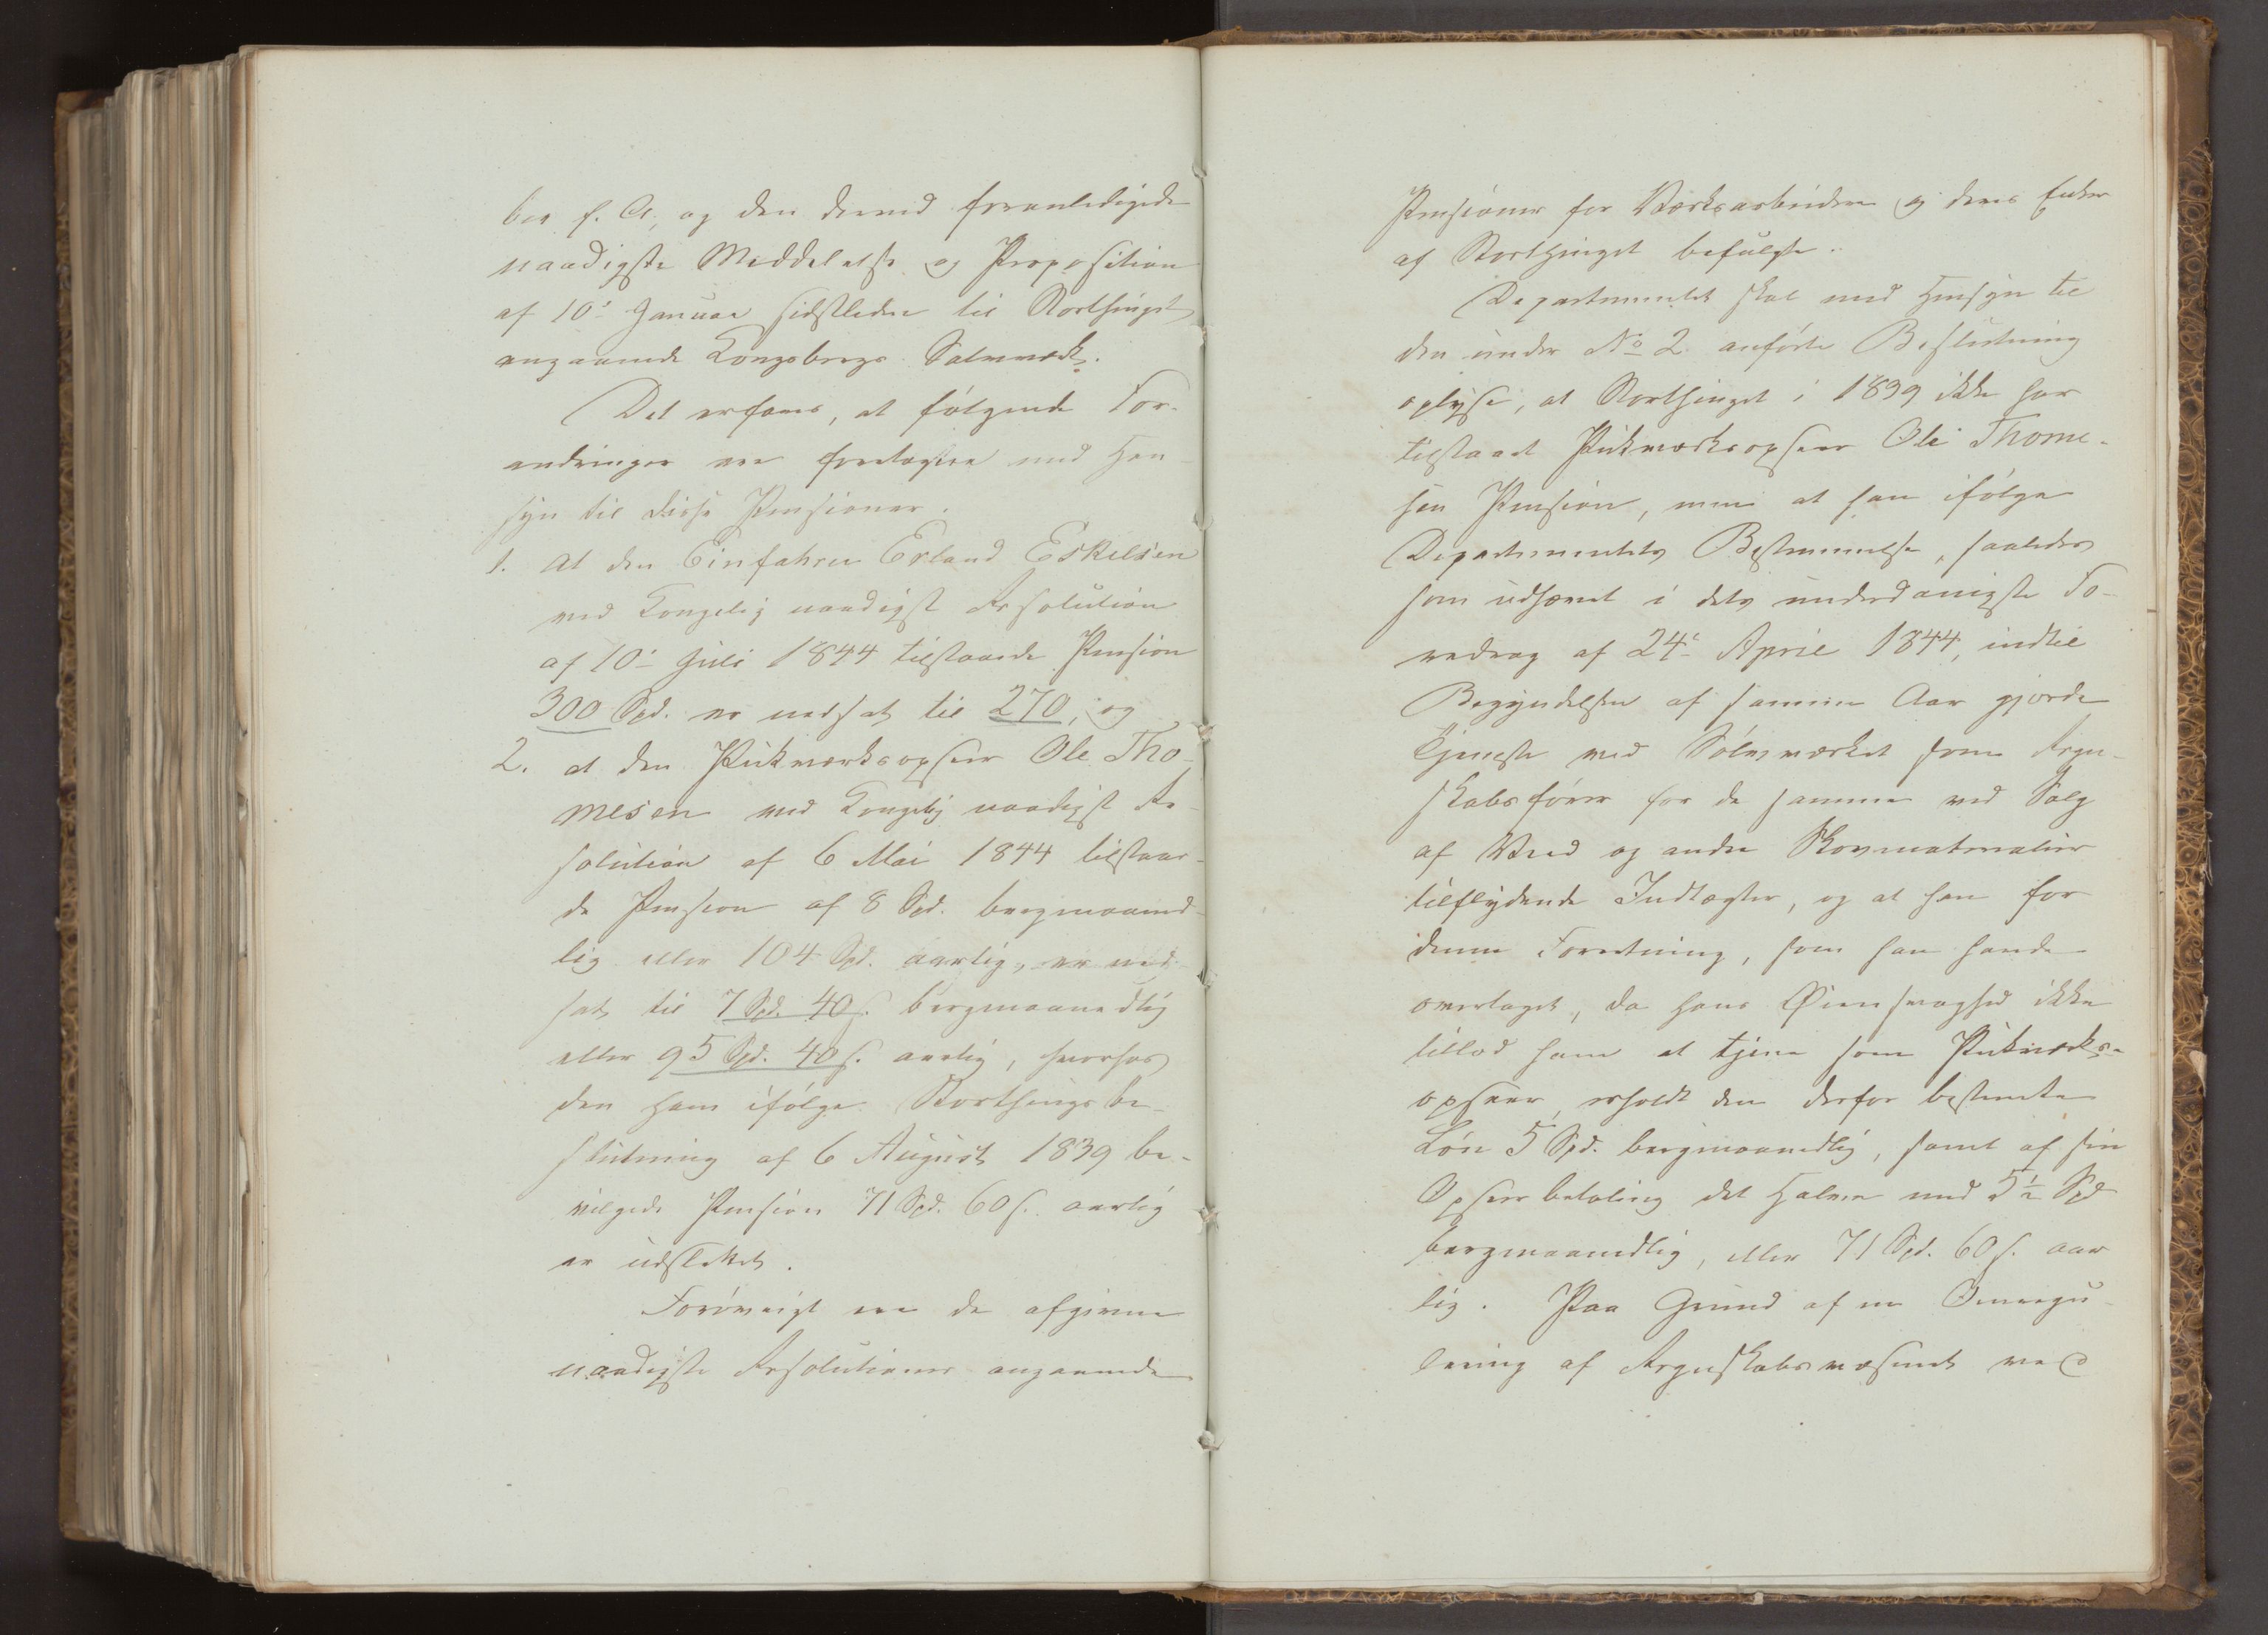 ber f. A, og den derved foranledigede
naadigste Meddelelse og Proposition
af 10de Januar sidstleden til Storthinget
angaaende Kongsbergs Sølvværk.
Det erfares, at følgende For-
andringer ere foretagne med Hen-
syn til disse Pensioner.
1. At den Einfahrer Erland Eskelsen
ved Kongelig naadigst Resolution
af 10de Juli 1844 tilstaaede Pension
300 Spd. er nedsat til 270, og
2. at den Pukværksopseer Ole Tho-
mesen ved Kongelig naadigst Re-
solution af 6 Mai 1844 tilstaae-
de Pension af 8 Spd. bergmaaned-
lig eller 104 Spd. aarlig, er ned-
sat til 7 Spd. 40 s. bergmaanedlig
eller 95 Spd. 40 s. aarlig, hvorhos
den ham ifølge Storthingsbe-
slutning af 6 August 1839 be-
vilgede Pension 71 Spd. 60 s. aarlig
er udslettet.
Forøvrigt ere de afgivne
naadigste Resolutioner angaaende
Pensioner for Værksarbeidere og deres Enker
af Storthinget befulgte.
Departementet skal med Hensyn til
den under No 2 anførte Beslutning
oplyse, at Storthinget i 1839 ikke har
tilstaaet Pukværksopseer Ole Thome-
sen Pension, men at han ifølge
Departementets Bestemmelse, saaledes
som udhævet i dets underdanigste Fo-
redrag af 24de April 1844, indtil
Begyndelsen af samme Aar gjorde
Tjeneste ved Sølvværket som Regn-
skabsfører for de samme ved Salg
af Veed og andre Skovmaterialier
tilflydende Indtægter, og at han for
denne Forretning, som han havde
overtaget, da hans Øiensvaghed ikke
tillod ham at tjene som Pukværks-
opseer, erholdt den derfor bestemte
Løn 5 Spd. bergmaanedlig, samt af sin
Opseerbetaling det Halve med 5½ Spd
bergmaanedlig, eller 71 Spd. 60 s. aar
lig. Paa Grund af en Omregu-
lering af Regnskabsvæsenet ved